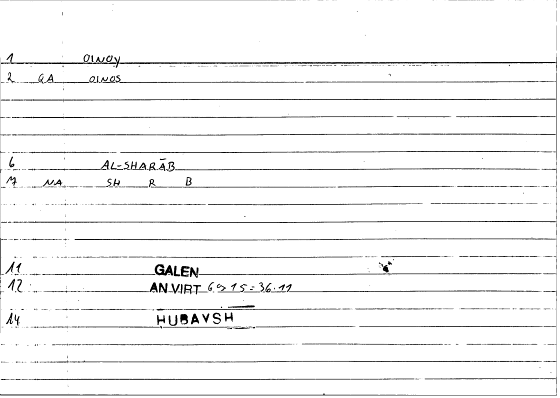 1 OINOY
2 GA OINOS
6 AL-SHARĀB
7 NA SH R B
11 GALEN
12 AN VIRT 6,15=36.11
14 HUBAYSH